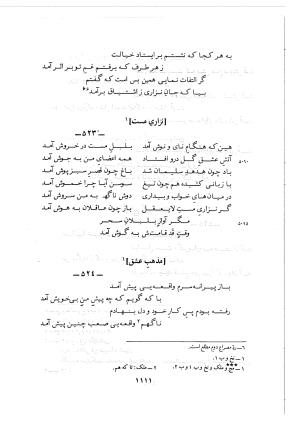 به هر کجا که نشستم برابستاد خیالت
ز هر طرف که برفتم غم تو بر اثر آمد
گر التفات نمایی همین بس است که گفتم
بیا که جان نزاری ز اشتیاق برآمد
[نزاری مست]¹
ـــ ۵۲۳ ـــ
هین که هنگام نای و نوش آمد
بلبل مست در خروش آمد
۵۰۲۰
آتش عشق گل درو افتاد
همه اعضای من به جوش آمد
باد چون هدهد سلیمان شد
باغ چون قصر سبزپوش آمد
با زبانی کشیده هم چون تیغ
سوسن آیا چرا خموش آمد
در میان های خواب و بیداری
دوش ناگه به من سروش آمد
گر نزاری مست لایعقل
باز چون عاقلان به هوش آمد
۵۰۲۵
مگر آواز بلبلان سحر
وقت قد قامتش به گوش آمد
[مذهب عشق]¹
ـــ ۵۲۴ ـــ
باز پیرانه سرم واقعه یی پیش آمد
با که گویم که چه پیش من بی خویش آمد
رفته بودم پس کار خود و دل بنهادم
ناگهم² واقعه یی صعب چنین پیش آمد
۶ـ مصراع دوم مطلع است.
۱ـ نخ و ب ۱.
***
۱ـ مج و ملک و نخ و ب ۱ و ب ۲. ۲ـ ملک: تا که هم.
۱۱۱۱